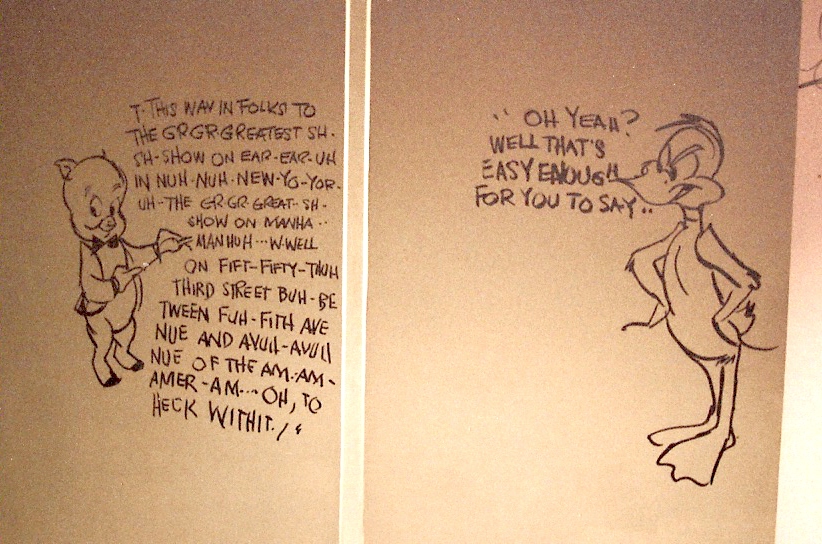 T-THIS WAY IN FOLKS TO
THE GR-GR-GREATEST SH-
SH-SHOW ON EAR-EAR-UH
IN NUH-NUH-NEW-YO-YOR-
UH-THE GR-GR-GREAT-SH-
SHOW ON MANHA--
MANHUH---W-WELL
ON FIFT-FIFTY-THUH
THIRD STREET BUH-BE
TWEEN FUH-FITH AVE
NUE AND AVUH-AVUH
NUE OF THE AM-AM-
AMER-AM--- OH, TO
HECK WITH IT!
" OH YEAH?
WELL THAT'S
EASY ENOUGH
FOR YOU TO SAY..